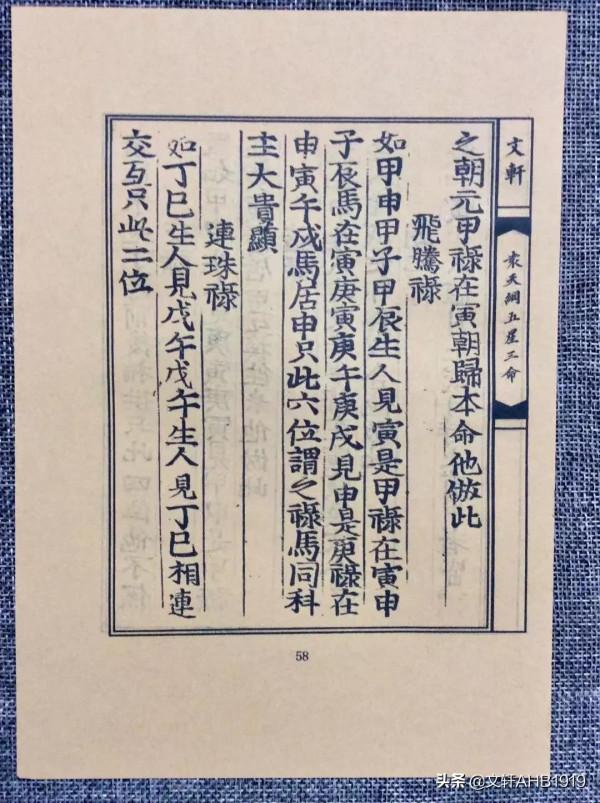 文軒
袁天綱五星三命
之朝元甲祿在寅朝歸本命他倣此
飛騰祿
如甲申甲子甲辰生人見寅是甲祿在寅申
子辰馬在寅庚寅庚午庚戌見申是庚祿在
申寅午戌馬居申只此六位謂之祿馬同科
主大貴顯
連珠祿
如丁巳生人見戊午戊午生人見丁巳相連
交互只此二位
58
头条@文轩AHB1919